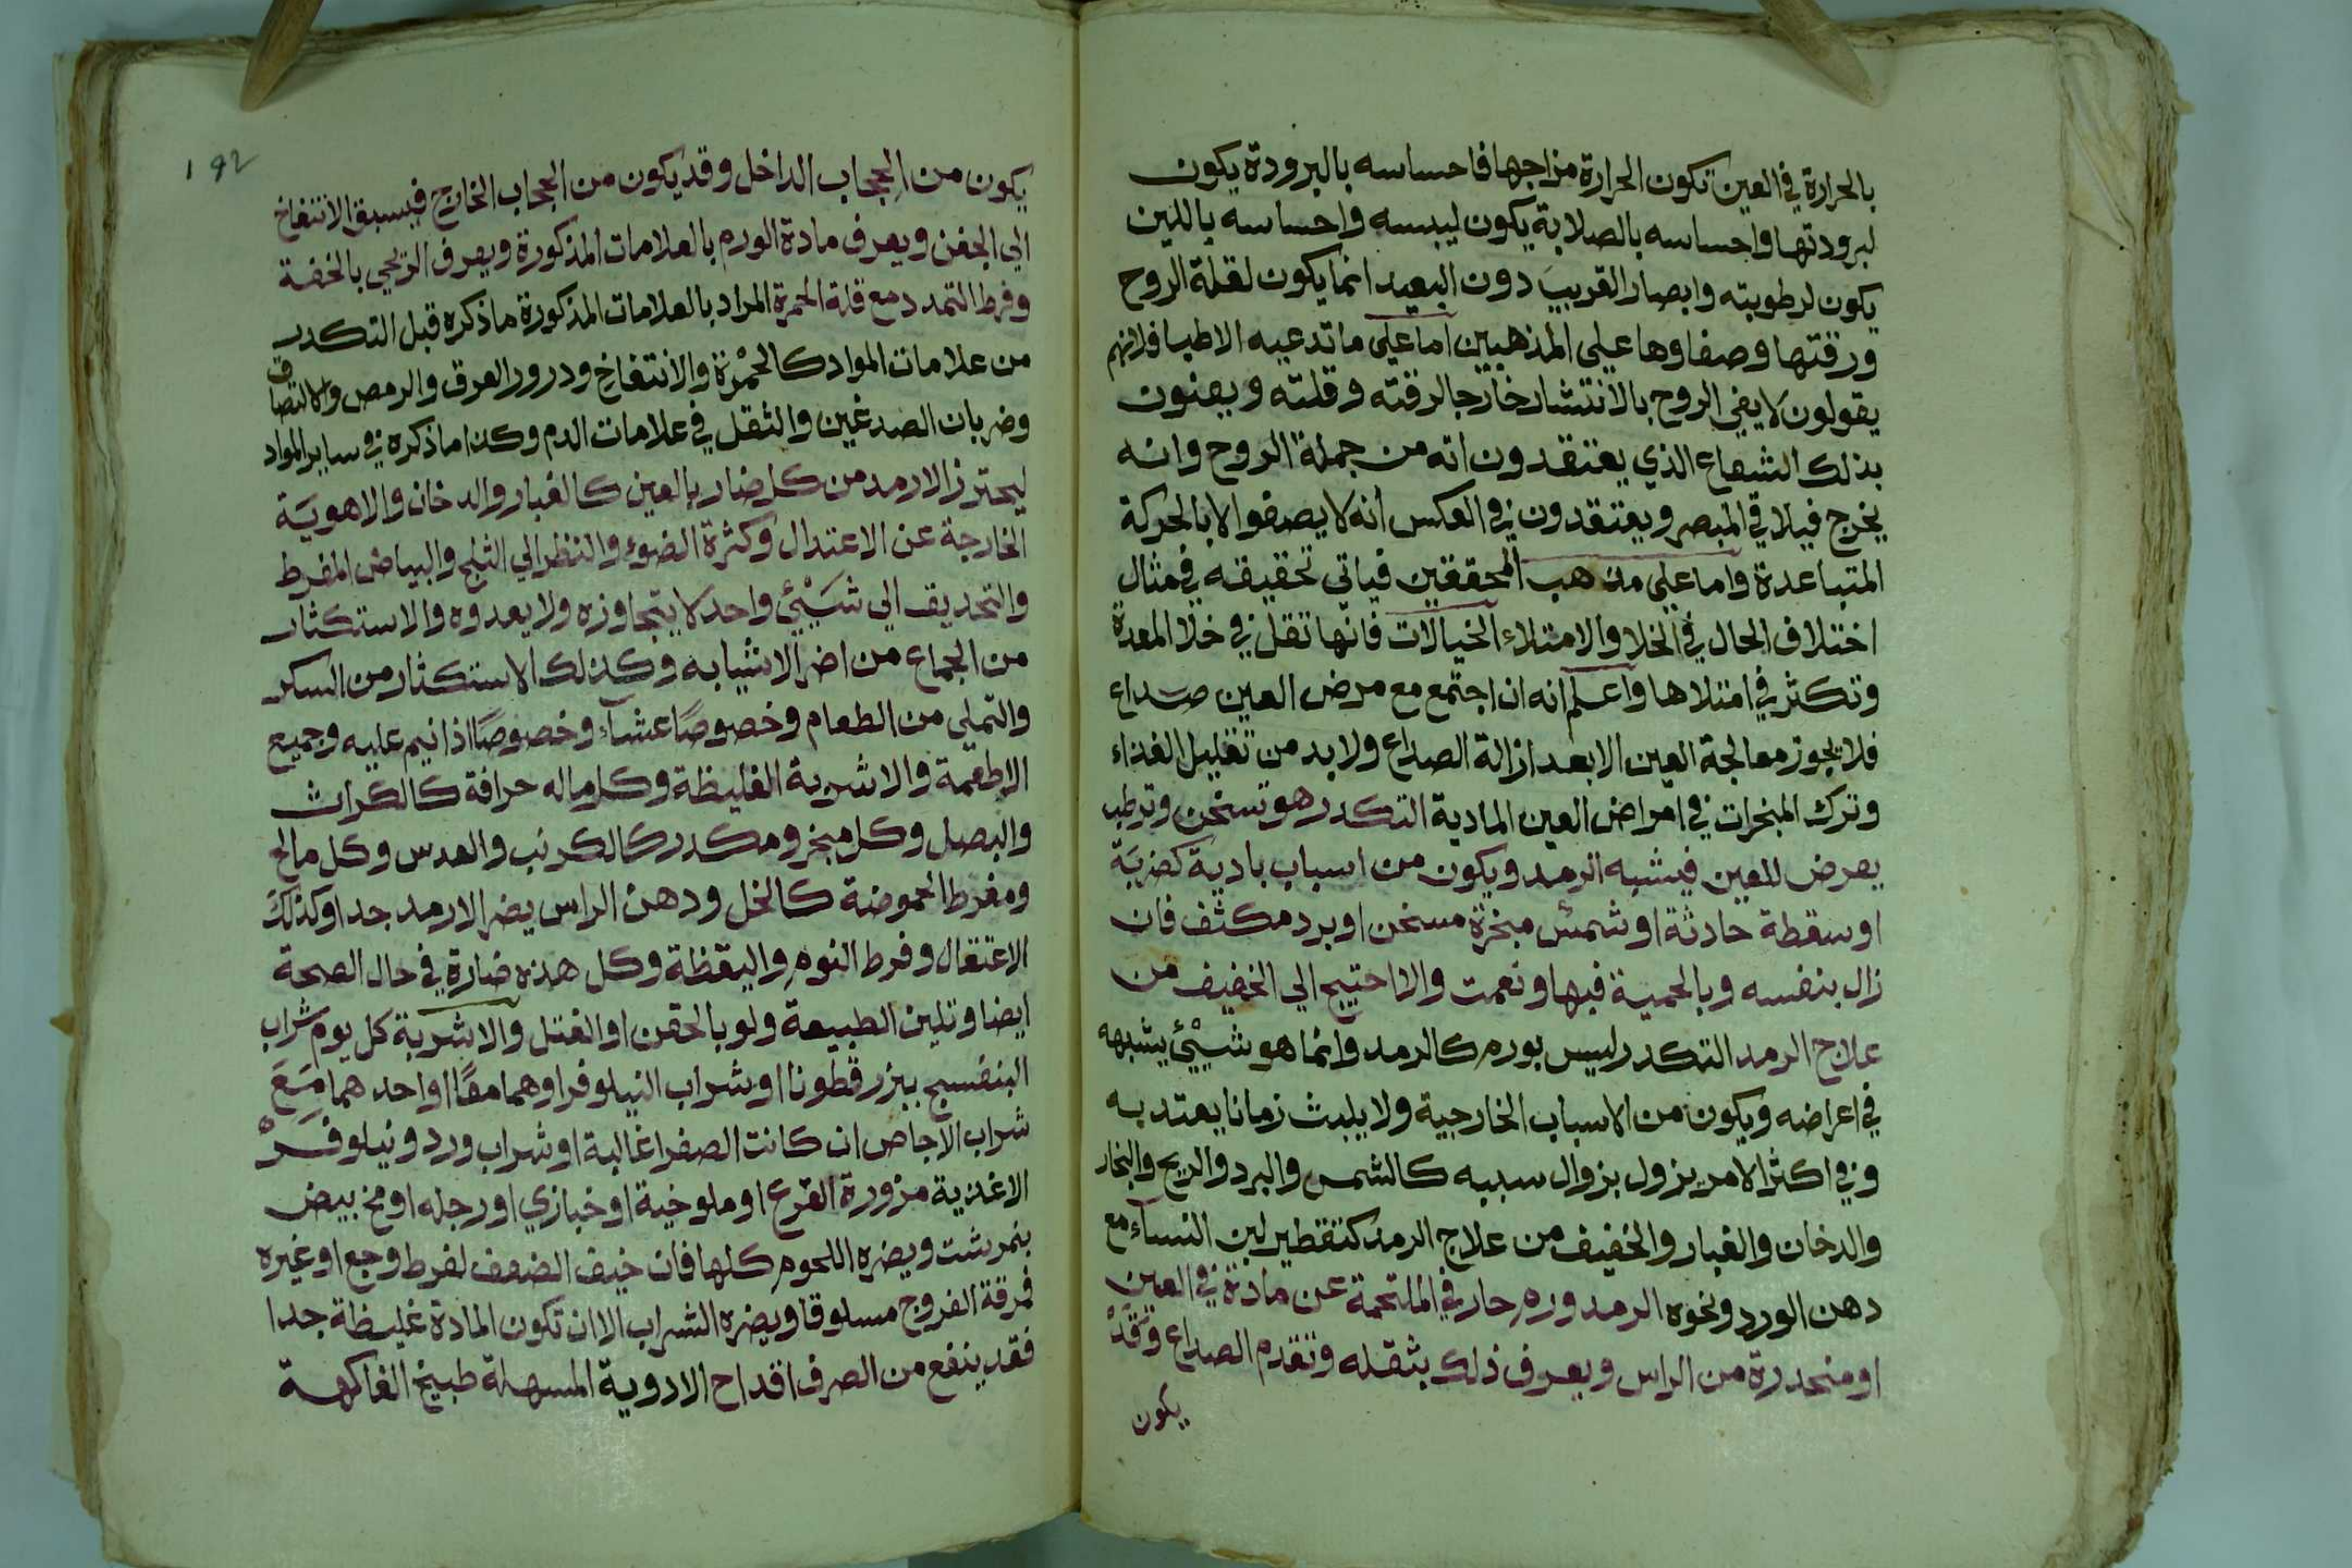 بالحرارة في العين تكون الحرارة مزاجها فاحساسه بالبرودة يكون
لبرودتها واحساسه بالصلابة يكون ليبسه واحساسه باللين
يكون لرطوبته وابصار القريب دون البعيد انما يكون لقلة الروح
ورقتها وصفاوها على المذهبين اما على ما تدعيه الاطبا فلانهم
يقولون لا يفي الروح بالانتشار خارجا لرقته وقلته ويعنون
بذلك الشعاع الذي يعتقدون انه من جملة الروح وانه
يخرج فيلاقي المبصر ويعتقدون في العكس انه لا يصفوا الا بالحركة
المتباعدة واما على مذهب المحققين فياتي تحقيقه في مثال
اختلاف الحال في الخلا والامتلاء الخيالات فانها تقل في خلا المعدة
وتكثر في امتلاها واعلم انه ان اجتمع مع مرض العين صداع
فلا يجوز معالجة العين الا بعد ازالة الصداع ولا بد من تقليل الغذاء
وترك المبخرات في امراض العين المادية التكدر هو تسخن وترطب
يعرض للعين فيشبه الرمد ويكون من اسباب بادية كضربة
او سقطة حادثة او شمس مبخرة مسخن او برد مكثف فان
زال بنفسه وبالحمية فبها ونعمت والا احتيج الي الخفيف من
علاج الرمد التكدر ليس بورم كالرمد وانما هو شيئ يشبهه
في اعراضه ويكون من الاسباب الخارجية ولا يلبث زمانا يعتد به
وفي اكثر الامر يزول بزوال سببه كالشمس والبرد والريح والبخار
والدخان والغبار والخفيف من علاج الرمد كتقطير لبن النسآء مع
دهن الورد ونحوه الرمد ورم حار في الملتحمة عن مادة في العين
او منحدرة من الراس ويعرف ذلك بثقله وتقدم الصداع وقد
يكون
192
يكون من الحجاب الداخل وقد يكون من الحجاب الخارج فيسبق الانتفاخ
الي الجفن ويعرف مادة الورم بالعلامات المذكورة ويعرف الريحي بالخفة
وفرط التمدد مع قلة الحمرة المراد بالعلامات المذكورة ما ذكره قبل التكدر
من علامات المواد كالحمرة والانتفاخ ودرور العرق والرمص والالتصاق
وضربان الصدغين والثقل في علامات الدم وكذا ما ذكره في ساير المواد
ليحترز الارمد من كل ضار بالعين كالغبار والدخان والاهوية
الخارجة عن الاعتدال وكثرة الضوء والنظر الي الثلج والبياض المفرط
والتحديق الي شيئ واحد لا يتجاوزه ولا يعدوه والاستكثار
من الجماع من اضر الاشيا به وكذلك الاستكثار من السكر
والتملي من الطعام وخصوصًا عشآء وخصوصًا اذا نيم عليه وجميع
الاطعمة والاشربة الغليظة وكل ما له حرافة كالكراث
والبصل وكل مبخر ومكدر كالكرنب والعدس وكل مالح
ومفرط الحموضة كالخل ودهن الراس يضر الارمد جدا وكذلك
الاعتقال وفرط النوم واليقظة وكل هذه ضارة في حال الصحة
ايضا وتلين الطبيعة ولو بالحقن او الفتل والاشربة كل يوم شراب
البنفسج ببزر قطونا او شراب النيلوفر او هما معًا او احدهما مع
شراب الاجاص ان كانت الصفرا غالبة او شراب ورد ونيلوفر
الاغذية مزورة القرع او ملوخية او خبازي او رجله او مح بيض
بنمرشت ويضره اللحوم كلها فان خيف الضعف لفرط وجع او غيره
فمرقة الفروج مسلوقا ويضره الشراب الا ان تكون المادة غليظة جدا
فقد ينفع من الصرف اقداح الادوية المسهلة طبيخ الفاكهة